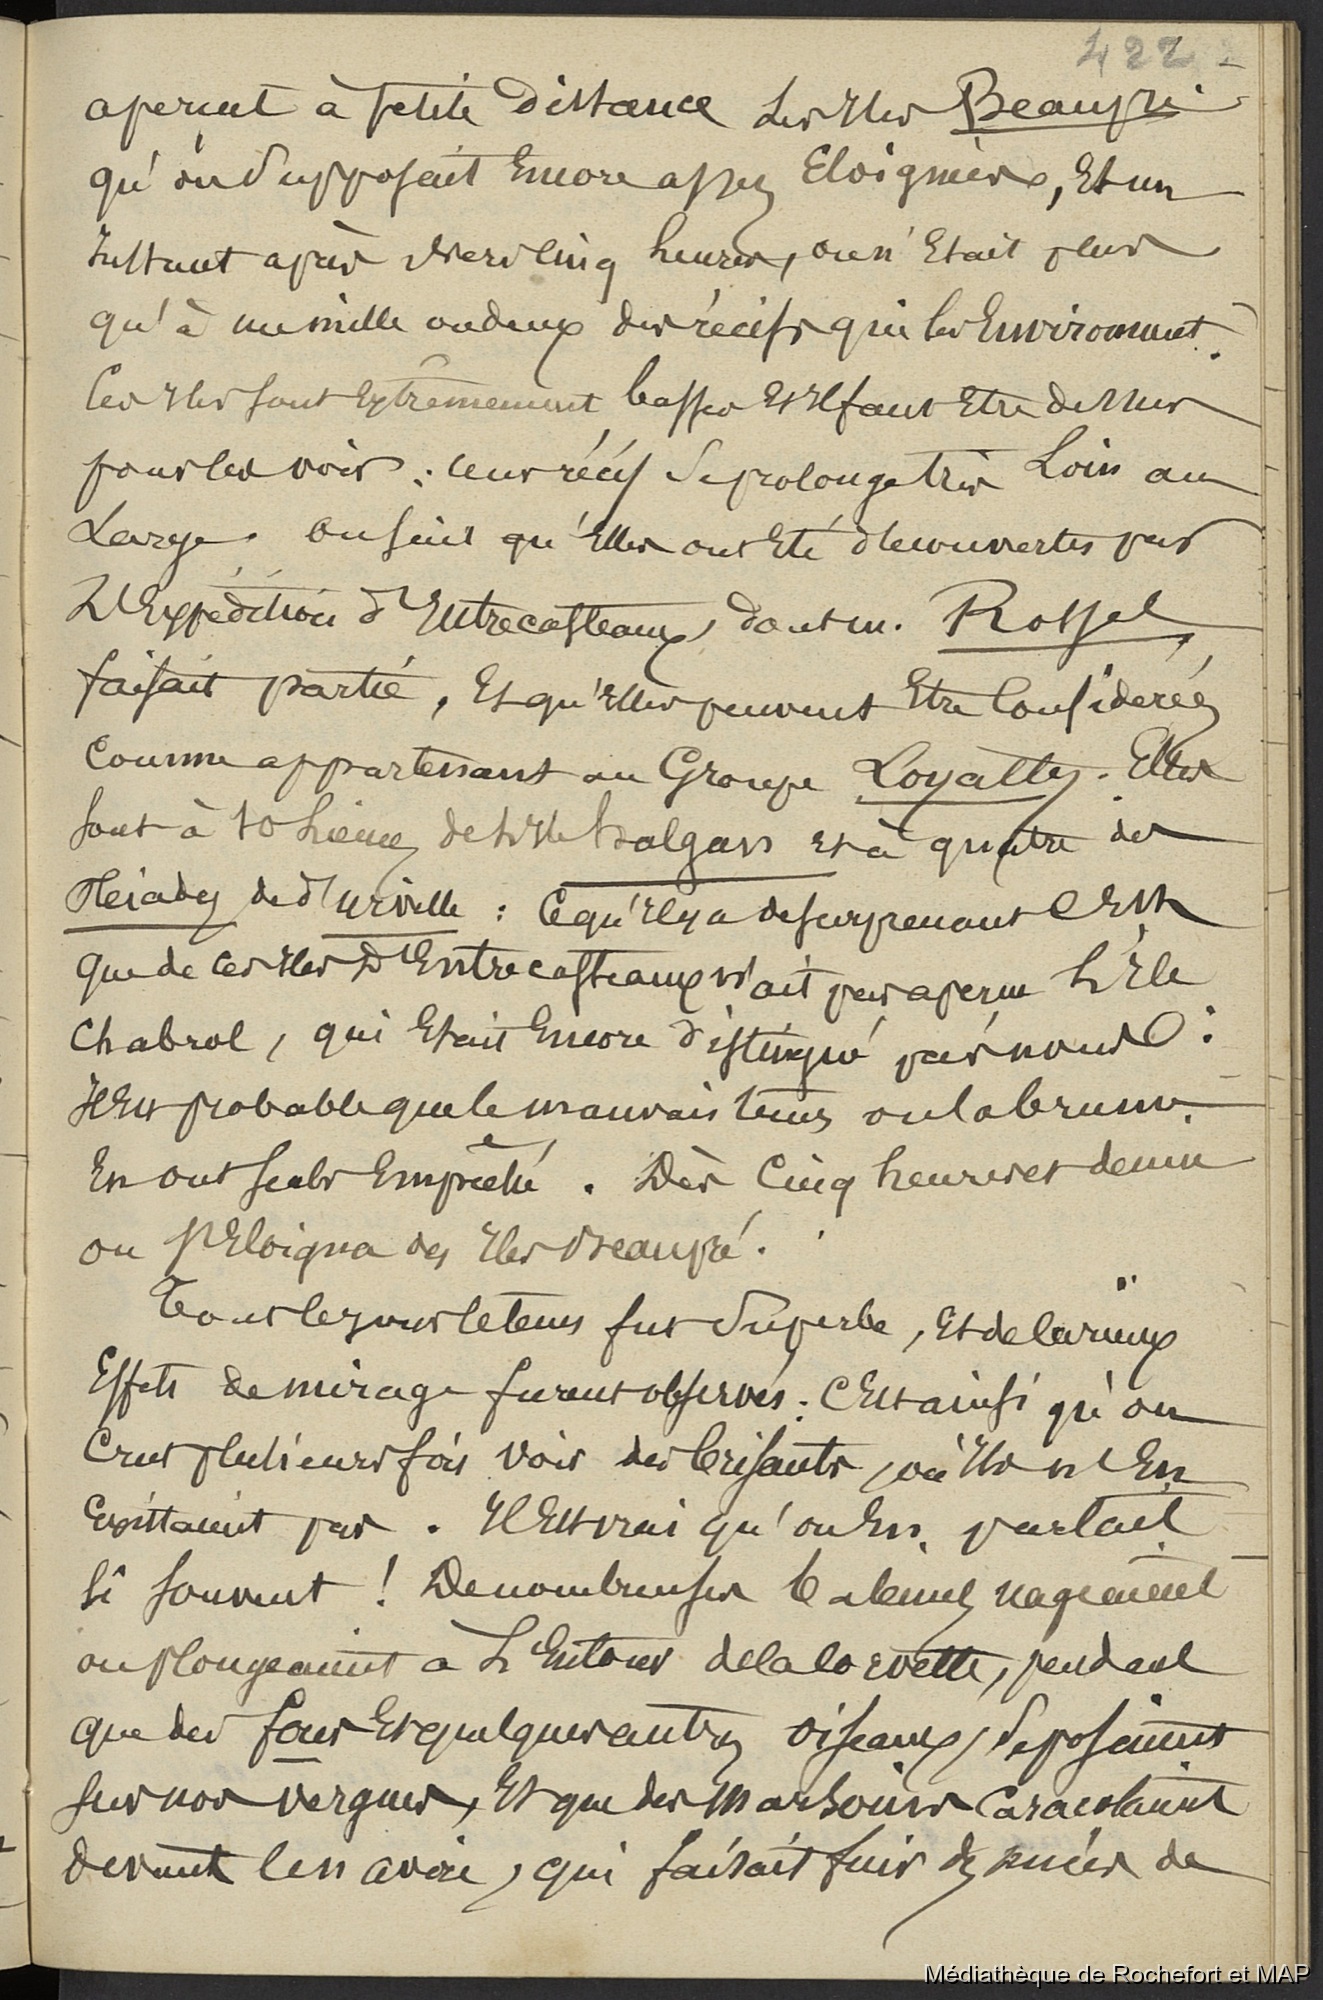 422
aperçut à petite distance les Iles Beaupré
qu'on supposait Encore assez Eloignées, Et un
Instant après vers Cinq heures, on n'Etait plus
qu'à un mille ou deux des récifs qui les Environnent.
Ces Iles sont Extrêmement basses Et Il faut Etre dessus
pour les voir : leur récif se prolonge très Loin au
Large. On sait qu'Elles ont Eté découvertes par
L'Expédition d'Entrecasteaux, dont m. Rossel
faisait partie, Et qu'Elles peuvent Etre Considérées
Comme appartenant au Groupe Loyalty. Elles
sont à 10 Lieues de L'Ile halgan et à quatre des
Pleiades de d'urville : Ce qu'Il y a de surprenant C'Est
que de ces Iles D'Entrecasteaux n'ait pas aperçu L'Ile
Chabrol, qui Etait Encore distingué par nous :
Il Est probable que le mauvais tems ou la brume
En ont seuls Empêché. Dès Cinq heures et demie
on s'Eloigna des Iles Beaupré.
Tous les jours le tems fut Superbe, Et de Curieux
Effets de mirage furent observés : C'Est ainsi qu'on
Crut plusieurs fois voir des brisants, où Il n'En
Existaient pas. Il Est vrai qu'on En parlait
si souvent ! De nombreuses baleines nageaient
ou plongeaient à L'Entour de la Corvette, pendant
que des fous Et quelques autres oiseaux, se posaient
sur nos vergues, Et que des marsouins Caracolaient
devant le navire, qui faisait fuir des nuées de
Médiathèque de Rochefort et MAP